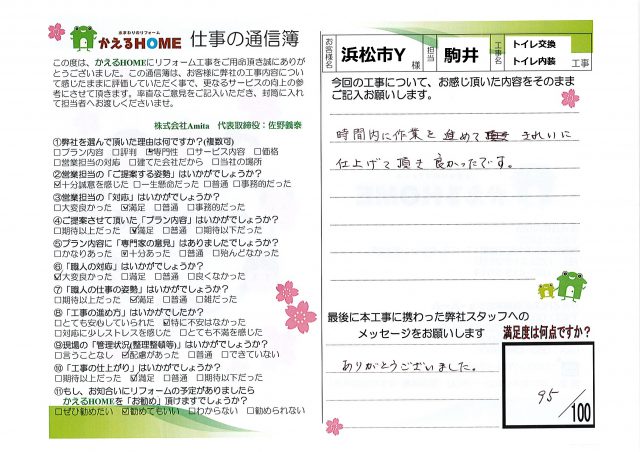 水まわりのリフォーム
かえるHOME 仕事の通信簿
この度は、かえるHOMEにリフォーム工事をご用命頂き誠にありが
とうございました。この通信簿は、お客様に弊社の工事内容につい
て感じたままに評価していただく事で、更なるサービスの向上の参
考にさせて頂きます。率直なご意見をご記入いただき、封筒に入れ
て担当者へお渡しくださいませ。
株式会社Amita 代表取締役：佐野義泰
①弊社を選んで頂いた理由は何ですか?(複数可)
□プラン内容 □評判 ☑専門性 □サービス内容 □価格
□営業担当の対応 □建てた会社だから □当社の場所
②営業担当の「ご提案する姿勢」はいかがでしょうか？
☑十分誠意を感じた □一生懸命だった □普通 □事務的だった
③営業担当の「対応」はいかがでしょうか？
□大変良かった ☑満足 □普通 □事務的だった
④ご提案させて頂いた「プラン内容」はいかがでしょうか？
□期待以上だった ☑満足 □普通 □期待以下だった
⑤プラン内容に「専門家の意見」はありましたでしょうか？
□かなりあった ☑十分あった □普通 □殆んどなかった
⑥「職人の対応」はいかがでしょうか？
☑大変良かった □満足 □普通 □良くなかった
⑦「職人の仕事の姿勢」はいかがでしょうか？
□期待以上だった ☑満足 □普通 □雑だった
⑧「工事の進め方」はいかがでしたか？
□とても安心していられた ☑特に不安はなかった
□対応に少しストレスを感じた □とても不満を感じた
⑨現場の「管理状況(整理整頓等)」はいかがでしょうか？
□言うことなし ☑配慮があった □普通 □できていない
⑩「工事の仕上がり」はいかがでしょうか？
□期待以上だった ☑満足 □普通 □期待以下だった
⑪もし、お知合いにリフォームの予定がありましたら
かえるHOMEを「お勧め」頂けますでしょうか？
□ぜひ勧めたい ☑勧めてもいい □わからない □勧められない
お客様名 浜松市Y 様 担当 駒井 工事名 トイレ交換 トイレ内装 工事
今回の工事について、お感じ頂いた内容をそのまま
ご記入お願いします。
時間内に作業を進めて きれいに
仕上げて頂き良かったです。
最後に本工事に携わった弊社スタッフへの
メッセージをお願いします
ありがとうございました。
満足度は何点ですか？
95/100